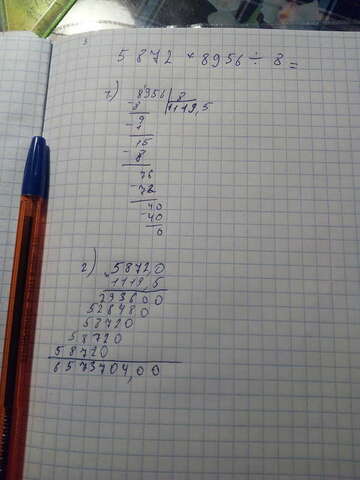 5872 * 8956 ÷ 8 =
1) 8956 | 8
- 8 1119,5
9
- 8
15
- 8
76
- 72
40
- 40
0
2) 5872,0
1119,5
293600
528480
58720
58720
58720
6573704,00